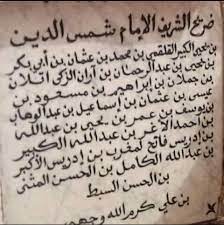 ضريح الشريف الإمام شمس الدين
بن يحيى الكبير القلقمي بن محمد بن عثمان بن أبي بكر
بن يحيى بن عبد الرحمان بن آران الزكي اتلان
بن جملان بن إبراهيم بن مسعود بن
عيسى بن عثمان بن إسماعيل بن عبد الوهاب
بن يوسف بن عمر بن يحيى بن عبد الله
بن أحمد الأغر بن عبد الله الكبير
بن إدريس فاتح المغرب بن إدريس الأكبر
بن عبد الله الكامل بن الحسن المثنى
بن الحسن السبط
بن علي كرم الله وجهه